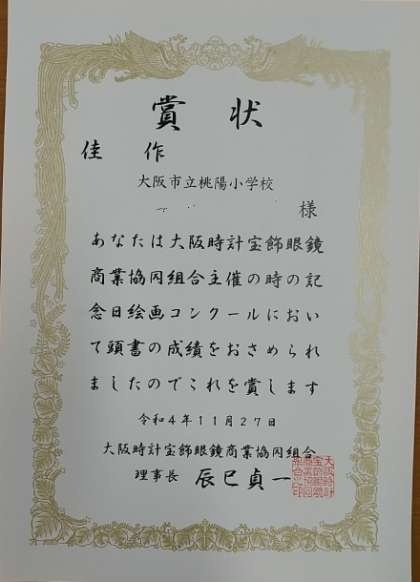 賞状
佳作
大阪市立桃陽小学校
様
あなたは大阪時計宝飾眼鏡
商業協同組合主催の時の記
念日絵画コンクールにおい
て頭書の成績をおさめられ
ましたのでこれを賞します
令和4年11月27日
大阪時計宝飾眼鏡商業協同組合
理事長 辰巳貞一